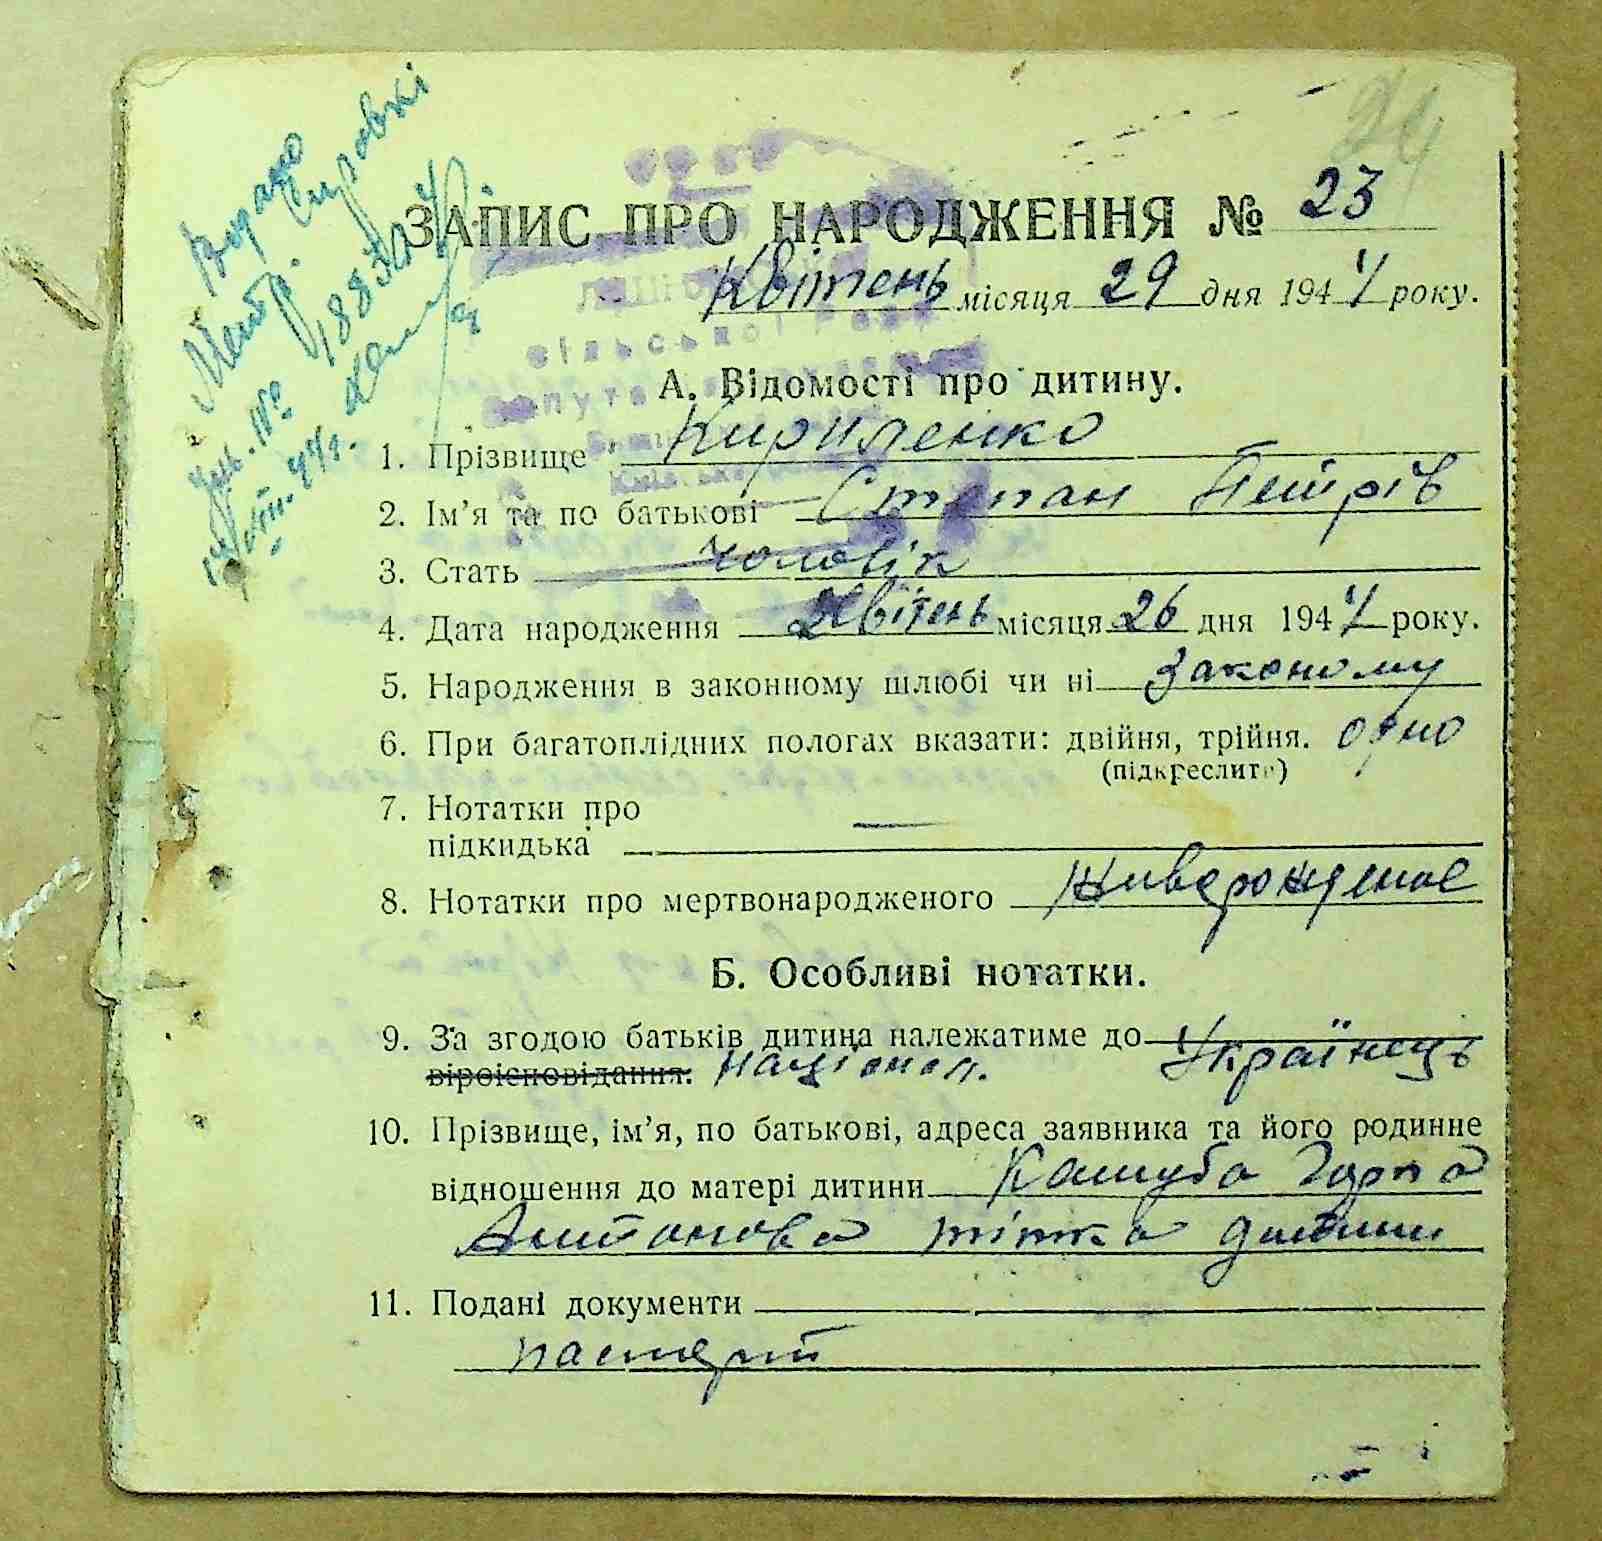 24
Видано
Метр. Справкі
ЗАПИС ПРО НАРОДЖЕННЯ № 23
Квітень місяця 29 дня 1944 року.
сільської Ради
А. Відомості про дитину.
1. Прізвище Кириленко
2. Ім'я та по батькові Степан Петрів
3. Стать чоловік
4. Дата народження Квітень місяця 26 дня 1944 року.
5. Народження в законному шлюбі чи ні Законому
6. При багатоплідних пологах вказати: двійня, трійня. одно
(підкреслити)
7. Нотатки про
підкидька —
8. Нотатки про мертвонародженого живорожденое
Б. Особливі нотатки.
9. За згодою батьків дитина належатиме до Українець
віроісповідання. націонал.
10. Прізвище, ім'я, по батькові, адреса заявника та його родинне
відношення до матері дитини Кашуба
Антонова тітка дитини
11. Подані документи
паспорт